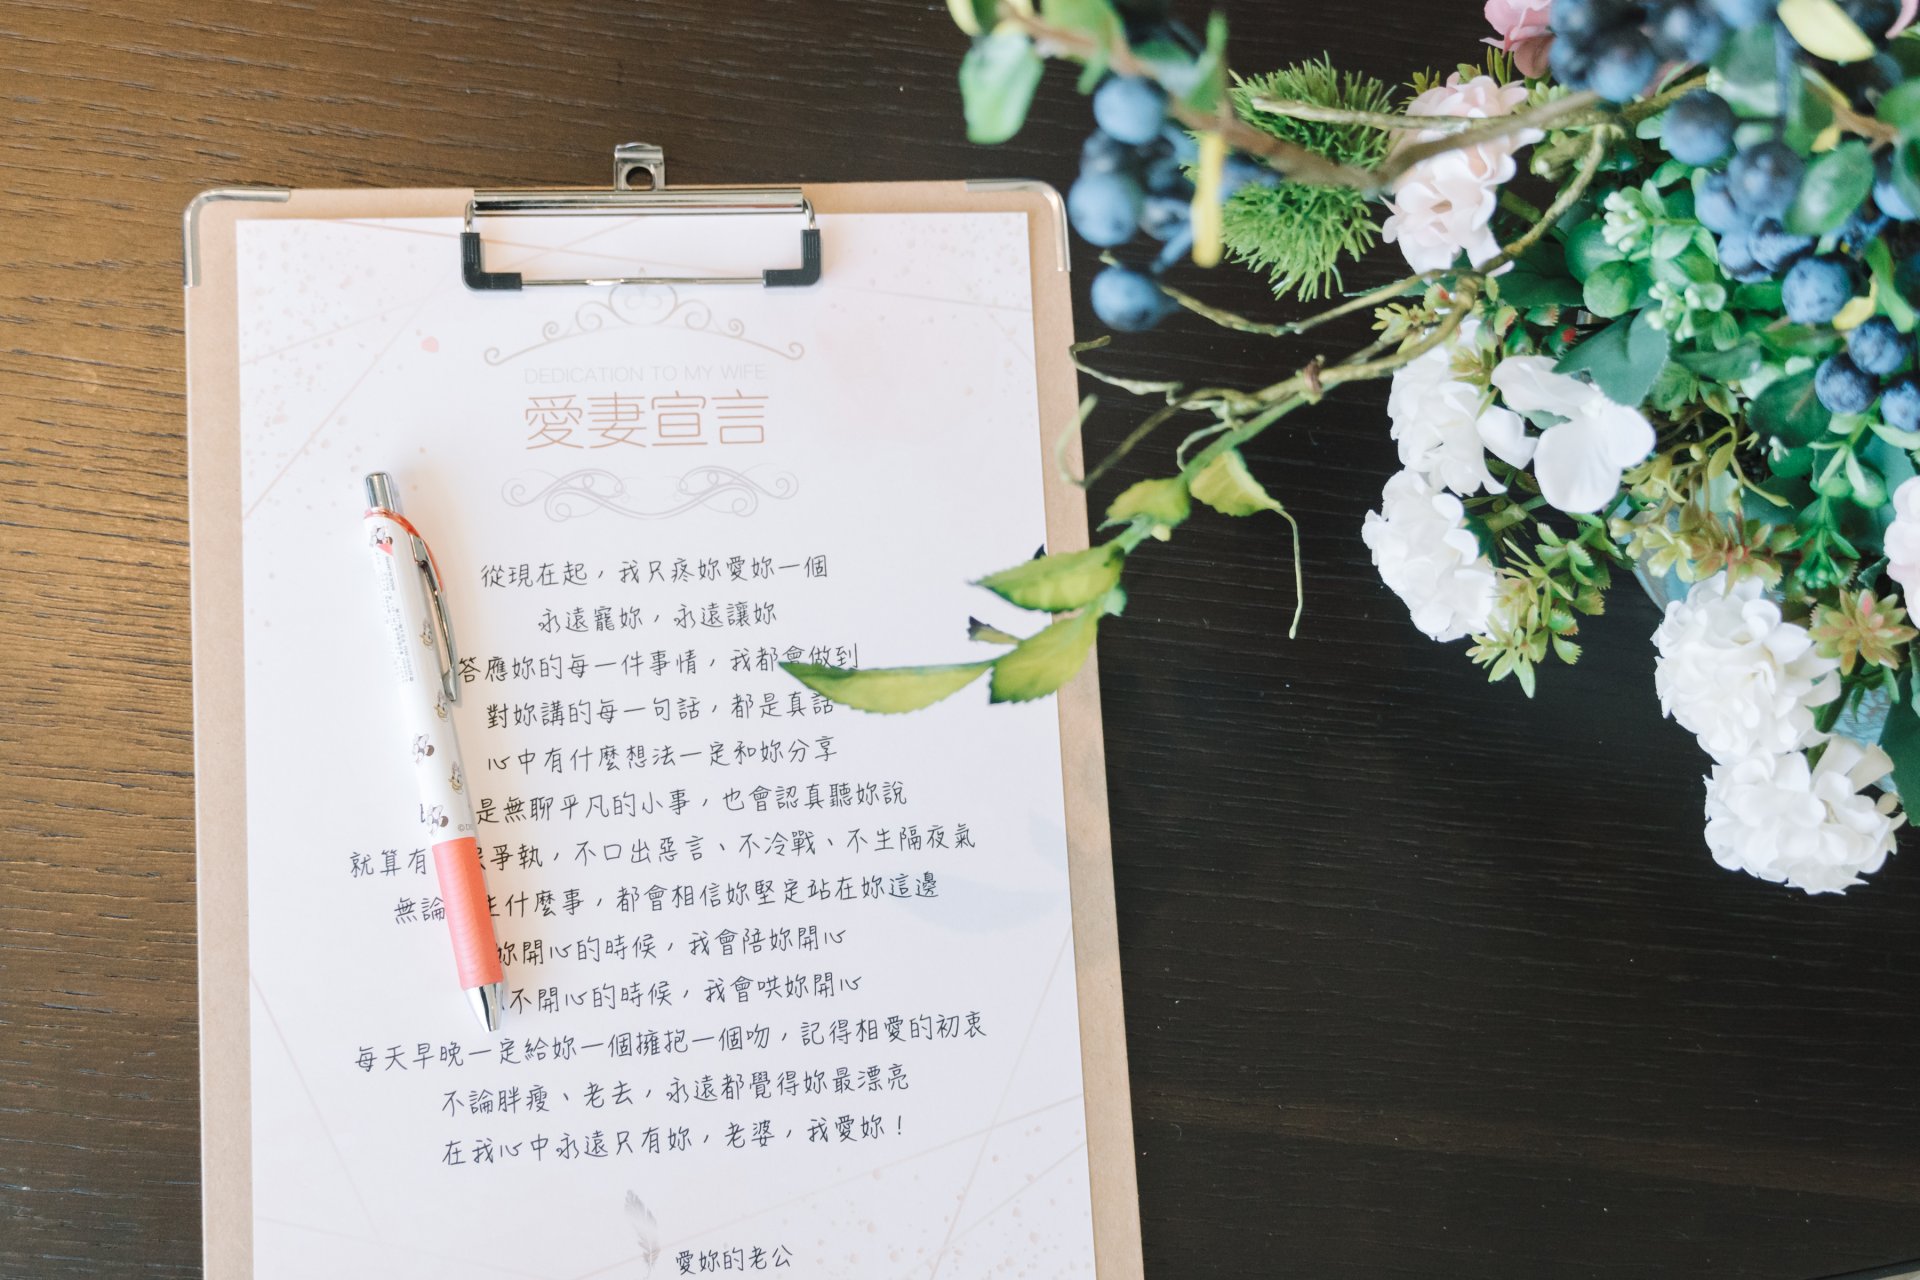 DEDICATION TO MY WIFE
愛妻宣言
從現在起，我只疼妳愛妳一個
永遠寵妳，永遠讓妳
答應妳的每一件事情，我都會做到
對妳講的每一句話，都是真話
心中有什麼想法一定和妳分享
是無聊平凡的小事，也會認真聽妳說
就算有爭執，不口出惡言、不冷戰、不生隔夜氣
無論生什麼事，都會相信妳堅定站在妳這邊
妳開心的時候，我會陪妳開心
不開心的時候，我會哄妳開心
每天早晚一定給妳一個擁抱一個吻，記得相愛的初衷
不論胖瘦、老去，永遠都覺得妳最漂亮
在我心中永遠只有妳，老婆，我愛妳！
愛妳的老公